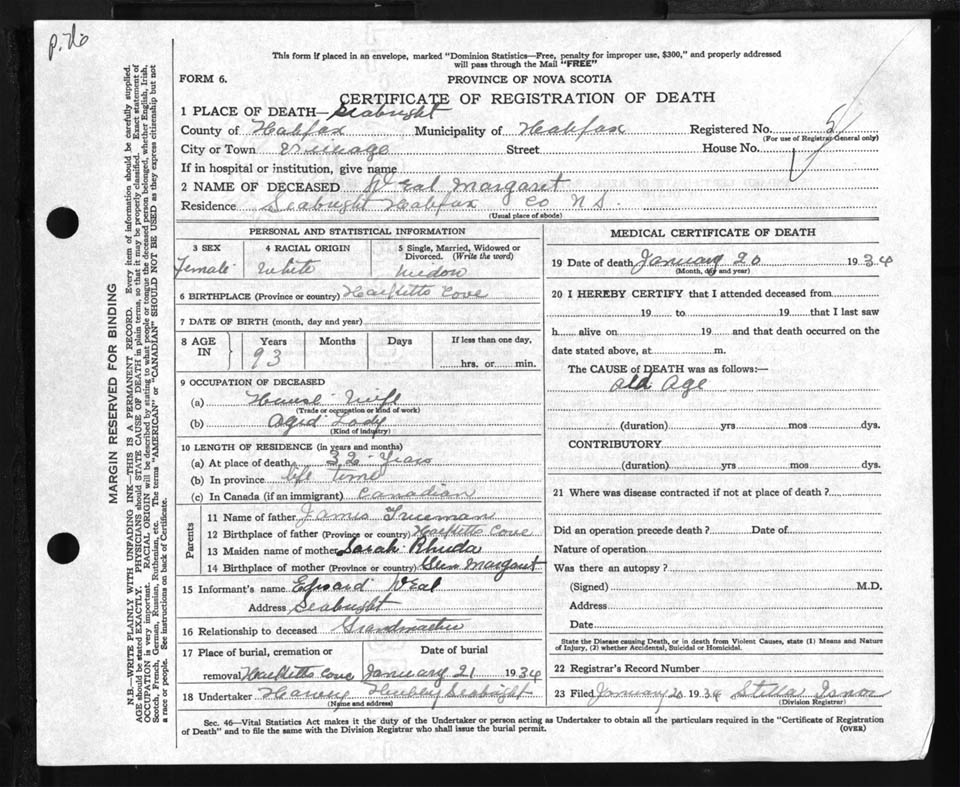 p. 76
This form if placed in an envelope, marked "Dominion Statistics—Free, penalty for improper use, $300," and properly addressed
will pass through the Mail "FREE"
FORM 6. PROVINCE OF NOVA SCOTIA
CERTIFICATE OF REGISTRATION OF DEATH
1 PLACE OF DEATH— Seabright
County of Halifax Municipality of Halifax Registered No. 5
(For use of Registrar General only)
City or Town Village Street House No.
If in hospital or institution, give name
2 NAME OF DECEASED Veal Margaret
Residence Seabright Halifax Co N.S.
(Usual place of abode)
PERSONAL AND STATISTICAL INFORMATION
3 SEX 4 RACIAL ORIGIN 5 Single, Married, Widowed or
Divorced. (Write the word)
Female White Widow
6 BIRTHPLACE (Province or country) Hacketts Cove
7 DATE OF BIRTH (month, day and year)
8 AGE IN Years Months Days If less than one day,
93 hrs. or min.
9 OCCUPATION OF DECEASED
(a) House Wife
(Trade or occupation or kind of work)
(b) Aged Lady
(Kind of industry)
10 LENGTH OF RESIDENCE (in years and months)
(a) At place of death 32 Years
(b) In province life time
(c) In Canada (if an immigrant) Canadian
Parents
11 Name of father James Trueman
12 Birthplace of father (Province or country) Hacketts Cove
13 Maiden name of mother Sarah Rhuda
14 Birthplace of mother (Province or country) Glen Margaret
15 Informant's name Edward Veal
Address Seabright
16 Relationship to deceased Grandmother
17 Place of burial, cremation or Date of burial
removal Hacketts Cove January 21 1934
18 Undertaker Hubley Seabright
(Name and address)
MEDICAL CERTIFICATE OF DEATH
19 Date of death January 20 1934
(Month, day and year)
20 I HEREBY CERTIFY that I attended deceased from
19 to 19 that I last saw
h alive on 19 and that death occurred on the
date stated above, at m.
The CAUSE of DEATH was as follows:—
old Age
(duration) yrs mos dys.
CONTRIBUTORY
(duration) yrs mos dys.
21 Where was disease contracted if not at place of death?
Did an operation precede death? Date of
Nature of operation
Was there an autopsy?
(Signed) M.D.
Address
Date
State the Disease causing Death, or in death from Violent Causes, state (1) Means and Nature
of Injury, (2) whether Accidental, Suicidal or Homicidal.
22 Registrar's Record Number
23 Filed January 20 1934 Stella Isnor
(Division Registrar)
Sec. 46—Vital Statistics Act makes it the duty of the Undertaker or person acting as Undertaker to obtain all the particulars required in the "Certificate of Registration
of Death" and to file the same with the Division Registrar who shall issue the burial permit. (OVER)
MARGIN RESERVED FOR BINDING
N.B.—WRITE PLAINLY WITH UNFADING INK—THIS IS A PERMANENT RECORD. Every item of information should be carefully supplied.
AGE should be stated EXACTLY. PHYSICIANS should STATE CAUSE OF DEATH in plain terms, so that it may be properly classified. Exact statement of
OCCUPATION is very important. RACIAL ORIGIN will be described by stating to what people or tongue the deceased person belonged, whether English, Irish,
Scotch, French, German, Russian, Ruthenian, etc. The terms "AMERICAN" or "CANADIAN" SHOULD NOT BE USED as they express citizenship but not
a race or people. See instructions on back of Certificate.